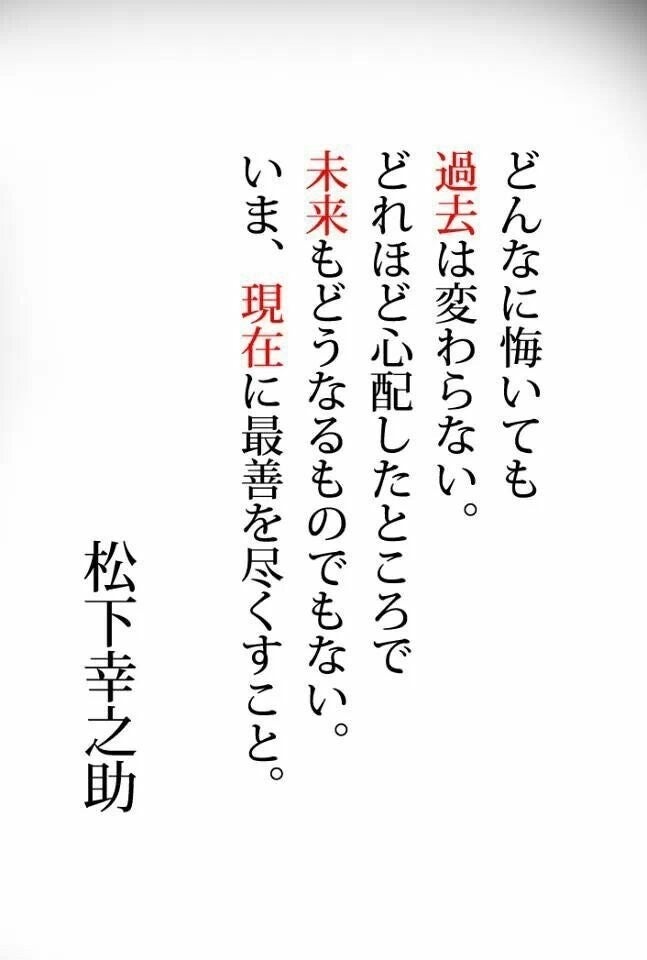 どんなに悔いても
過去は変わらない。
どれほど心配したところで
未来もどうなるものでもない。
いま、現在に最善を尽くすこと。
松下幸之助